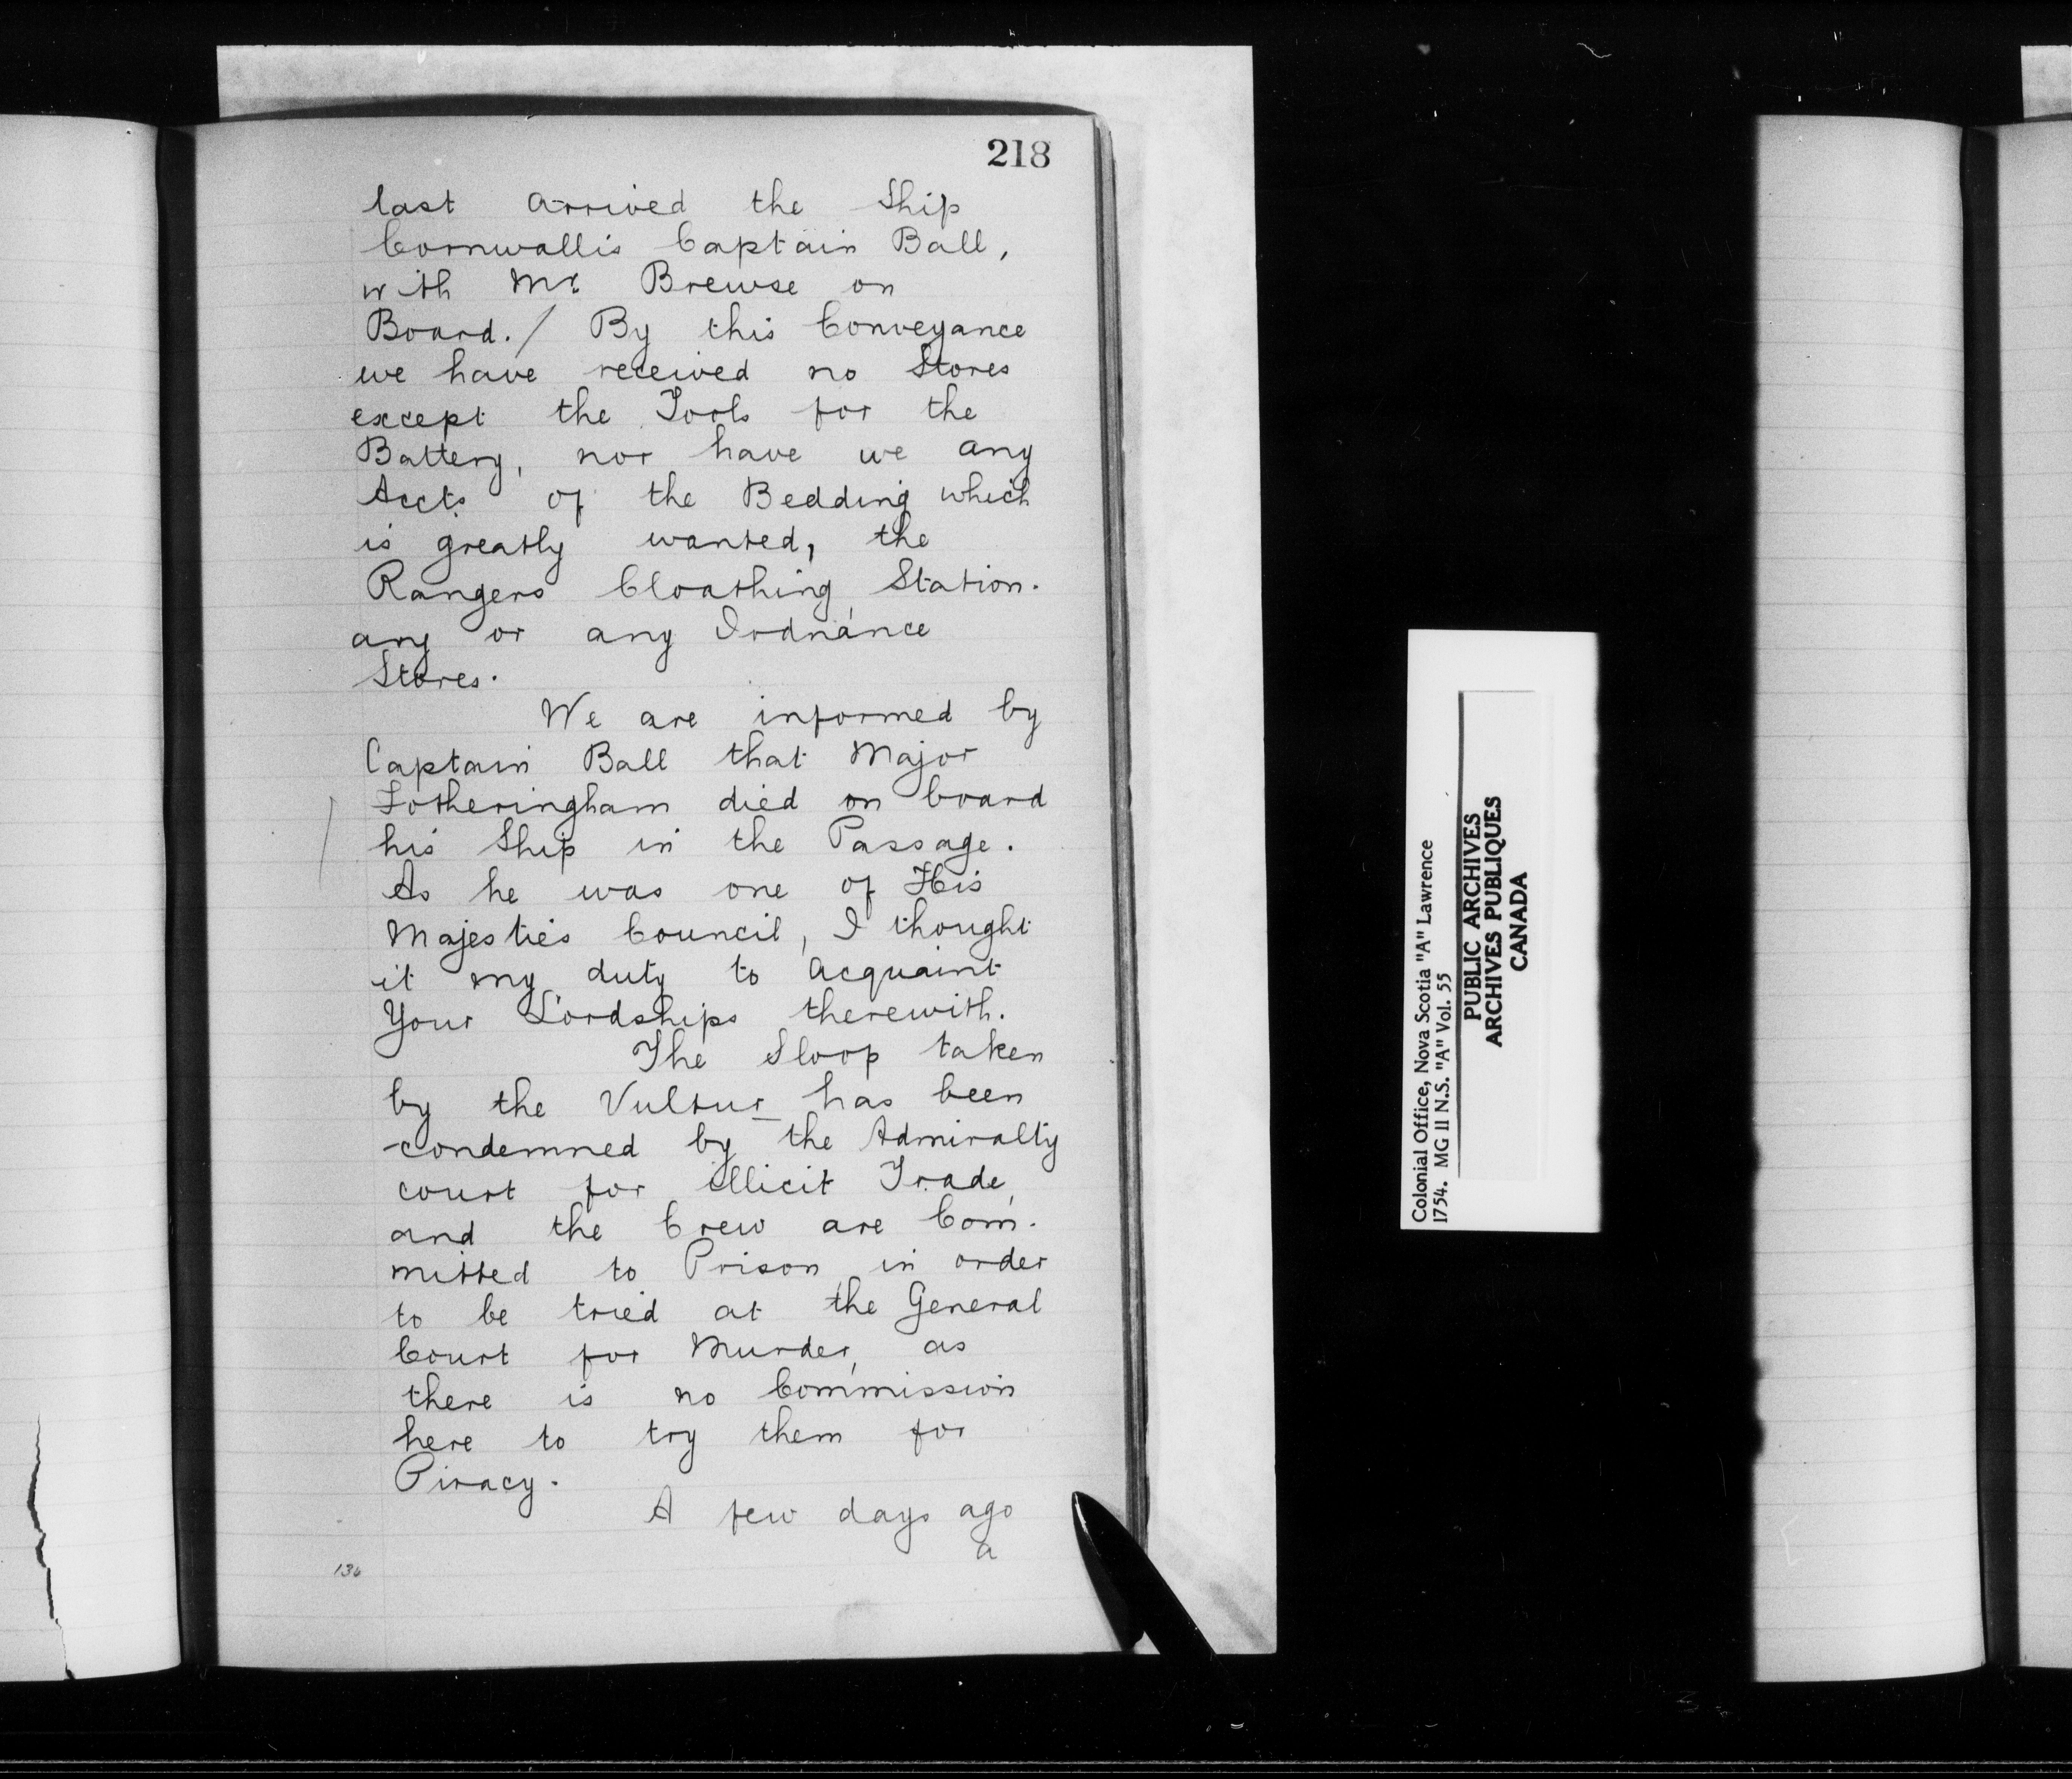 218
last arrived the Ship
Cornwallis Captain Ball,
with Mr. Brewse on
Board./ By this Conveyance
we have received no Stores
except the Tools for the
Battery, nor have we any
Accts of the Bedding which
is greatly wanted, the
Rangers Cloathing, Station-
ary or any Ordnance
Stores.
We are informed by
Captain Ball that Major
Fotheringham died on board
his Ship in the Passage.
As he was one of His
Majesties Council, I thought
it my duty to acquaint
Your Lordships therewith.
The Sloop taken
by the Vultur has been
condemned by the Admiralty
court for illicit Trade,
and the Crew are Com-
mitted to Prison, in order
to be tried at the General
Court for Murder, as
there is no Commission
here to try them for
Piracy.
A few days ago
a
136
Colonial Office, Nova Scotia "A" Lawrence
1754. MG 11 N.S. "A" Vol. 55
PUBLIC ARCHIVES
ARCHIVES PUBLIQUES
CANADA